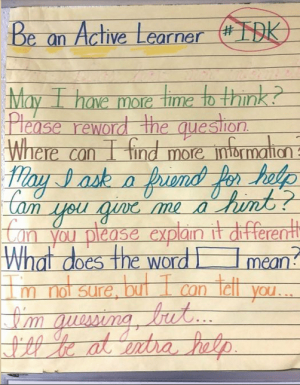 Be an Active Learner #IDK
May I have more time to think?
Please reword the question.
Where can I find more information?
May I ask a friend for help
Can you give me a hint?
Can you please explain it differentl
What does the word mean?
I'm not sure, but I can tell you...
I'm guessing, but...
I'll be at extra help.